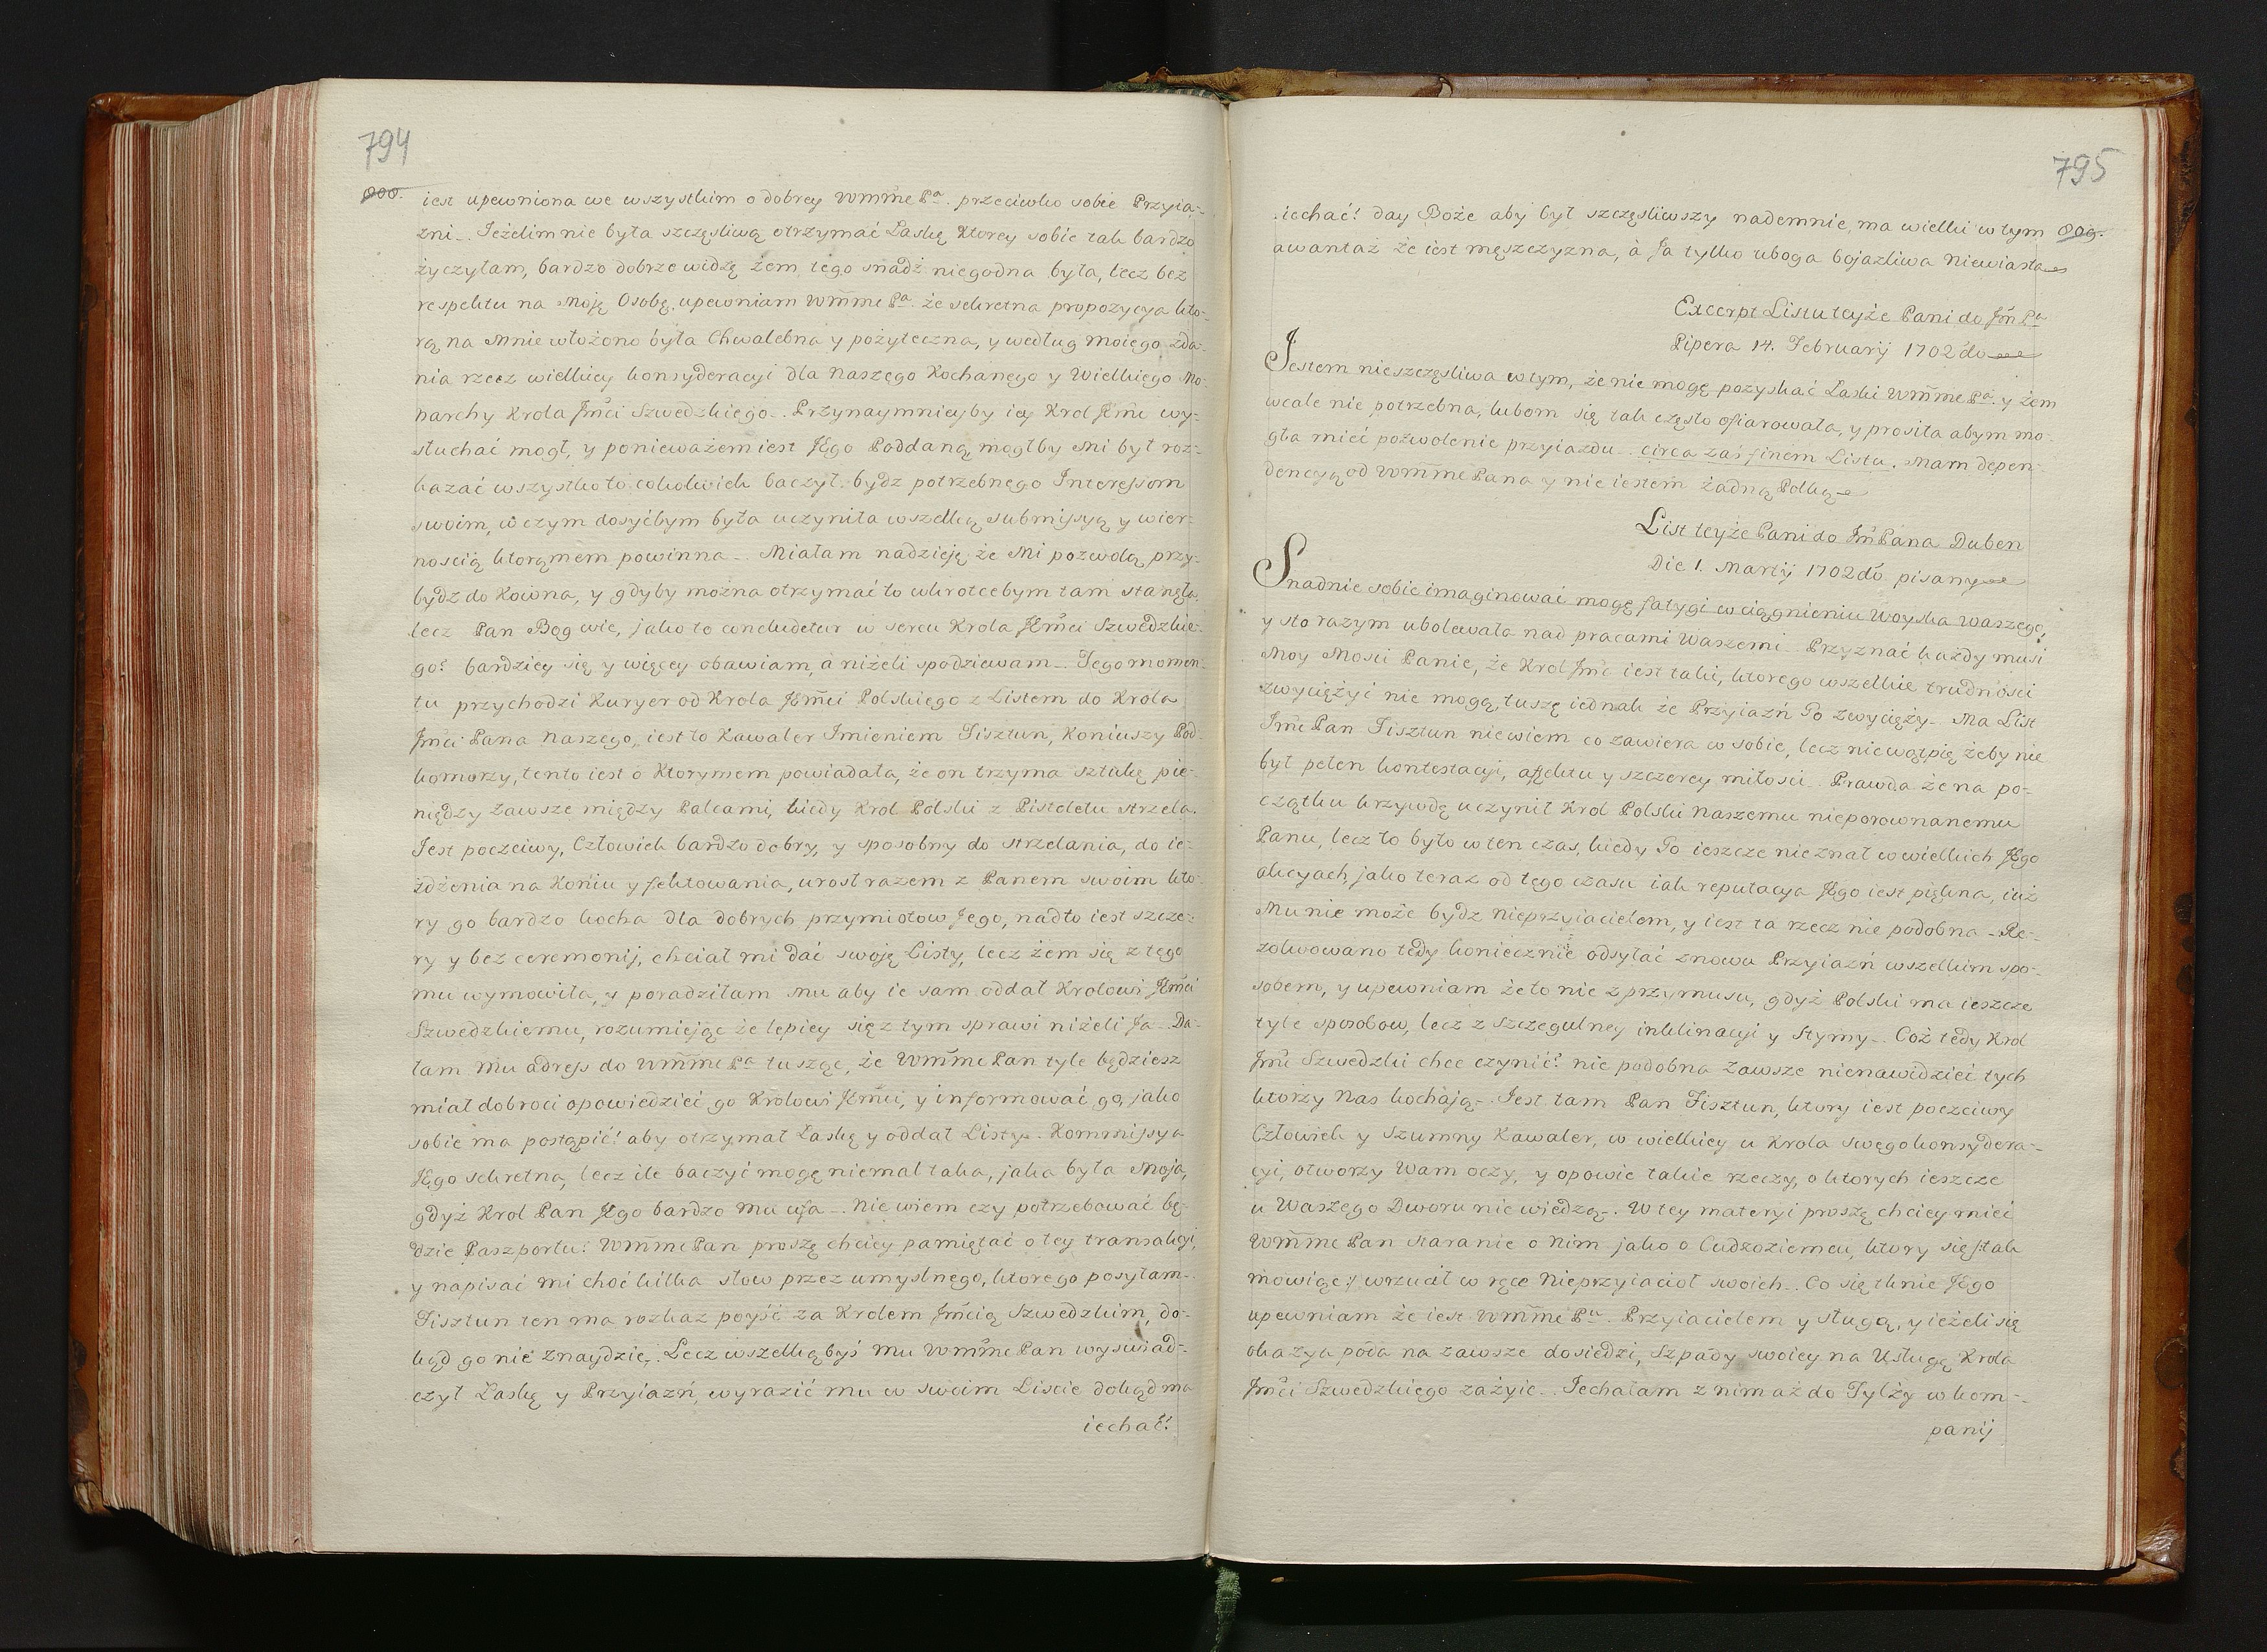 794
800.
iest upewniona we wszystkim o dobrey Wm̃me Pa. przeciwko sobie Przyia-
zni. Jeżelim nie była szczęśliwą otrzymać Łaskę Ktorey sobie tak bardzo
życzyłam, bardzo dobrze widzę żem tego snadź niegodna była, lecz bez
respektu na Moję Osobę, upewniam Wm̃me Pa. że sekretna propozycya kto-
rą na Mnie włożono była Chwalebna y pożyteczna, y według moiego zda-
nia rzecz wielkiey konsyderacyi dla Naszego Kochanego y Wielkiego Mo-
narchy Krola Jm̃ci Szwedzkiego. Przynaymnieyby iey Krol Jm̃c wy-
słuchać mogł, y ponieważem iest JEgo Poddaną, mogłby Mi był roz-
kazać wszystko to cokolwiek baczył bydz potrzebnego Interessom
swoim, w czym dosyćbym była uczyniła wszelką submissyą y wier-
nością ktorąmem powinna. Miałam nadzieję że Mi pozwolą przy-
bydz do Kowna, y gdyby można otrzymać to wkrotcebym tam stanęła.
lecz Pan Bog wie, jako to concludetur w sercu Krola JEm̃ci Szwedzkie-
go? bardziey się y więcey obawiam, a niżeli spodziewam. Tego momen-
tu przychodzi Kuryer od Krola JEm̃ci Polskiego z Listem do Krola
Jm̃ci Pana Naszego, iest to Kawaler Imieniem Fisztun, Koniuszy Pod-
komorzy, tento iest o Ktorymem powiadała, że on trzyma sztukę pie-
niędzy zawsze między Palcami, kiedy Krol Polski z Pistoletu strzela.
Jest poczciwy, Człowiek bardzo dobry, y sposobny do strzelania, do ie-
żdżenia na Koniu y fektowania, urosł razem z Panem swoim kto-
ry go bardzo kocha dla dobrych przymiotow Jego, nadto iest szcze-
ry y bez ceremonij, chciał mi dać swoję Listy, lecz żem się z tego
mu wymowiła, y poradziłam mu aby ie sam oddał Krolowi JEm̃ci
Szwedzkiemu, rozumiejąc że lepiey się z tym sprawi niżeli Ja. Da-
łam Mu adress do Wm̃me Pa tuszęc, że Wm̃me Pan tyle będziesz
miał dobroci opowiedzieć go Krolowi JEm̃ci, y informować gą, jako
sobie ma postąpić! aby otrzymał Łaskę y oddał Listy. Kommissya
JEgo sekretna, lecz ile baczyć mogę niemal taka, jaka była Moja,
gdyż Krol Pan JEgo bardzo Mu ufa. Nie wiem czy potrzebować bę-
dzie Paszportu: Wm̃me Pan proszę chciey pamiętać o tey transakcyi,
y napisać mi choć kilka słow przez umyslnego, ktorego posyłam.
Fisztun ten ma rozkaz poyść za Krolem Jm̃cią Szwedzkim, do-
kąd go nie znaydzie. Lecz wszelką byś Mu Wm̃me Pan wyswiad-
czył Łaskę y Przyiazń, wyrazić mu w swoim Liscie dokąd ma
iechać!
795
809.
iechać! day Boże aby był szczęśliwszy nademnie, ma wielki w tym
awantaż że iest męszczyzna, à Ja tylko uboga bojazliwa Niewiasta
Excerpt Listu teyże Pani do Jm̃ Pa
Pipera 14. February 1702do
Jestem nieszczęsliwa w tym, że nie mogę pozyskać Łaski Wm̃me Pa. y żem
wcale nie potrzebna, lubom się tak często ofiarowała, y prosiła abym mo-
gła mieć pozwolenie przyiazdu. circa zaś finem Listu. Mam depen-
dencyą od Wm̃me Pana y nie iestem żadną Polką
List teyże Pani do Jm̃ Pana Duben
Die 1. Martij 1702do pisany
Snadnie sobie imaginować mogę fatygi w ciągnieniu Woyska Waszego,
y sto razym ubolewała nad pracami Waszemi. Przyznać każdy musi
Moy Mosci Panie, że Krol Jm̃c iest taki, ktorego wszelkie trudności
zwyciężyć nie mogą, tuszę iednak że Przyiazń Go zwycięży. Ma List
Jm̃c Pan Fisztun niewiem co zawiera w sobie, lecz niewątpię żeby nie
był pełen kontestacyi, affektu y szczerey miłości. Prawda że na po-
czątku krzywdę uczynił Krol Polski Naszemu nieporownanemu
Panu, lecz to było w ten czas, kiedy Go ieszcze nie znał w wielkich JEgo
akcyach, jako teraz od tego czasu iak reputacya JEgo iest piękna, iuż
Mu nie może bydz Nieprzyiacielem, y iest ta rzecz nie podobna. Re-
zolwowano tedy koniecznie odsyłać znowu Przyiazń wszelkim spo-
sobem, y upewniam że to nie z przymusu, gdyż Polski ma ieszcze
tyle sposobow, lecz z szczegulney inklinacyi y Stymy. Coż tedy Krol
Jm̃c Szwedzki chce czynić? nie podobna zawsze nienawidzieć tych
ktorzy Nas kochają. Jest tam Pan Fisztun, ktory iest poczciwy
Człowiek y Szumny Kawaler, w wielkiey u Krola swego konsydera-
cyi, otworzy Wam oczy, y opowie takie rzeczy, o ktorych ieszcze
u Waszego Dworu nie wiedzą. W tey materyi proszę chciey mieć
Wm̃me Pan staranie o nim jako o Cudzoziemcu, ktory się /: tak
mowiąc :/ wrzucił w ręce Nieprzyiacioł swoich. Co się tknie JEgo
upewniam że iest Wm̃me Pu. Przyiacielem y sługą, y ieżeli się
okazya poda na zawsze dosiedzi, Szpady swoiey na Usługę Krola
Jm̃ci Szwedzkiego zażyie. Jechałam z nim aż do Tylży w kom-
panij